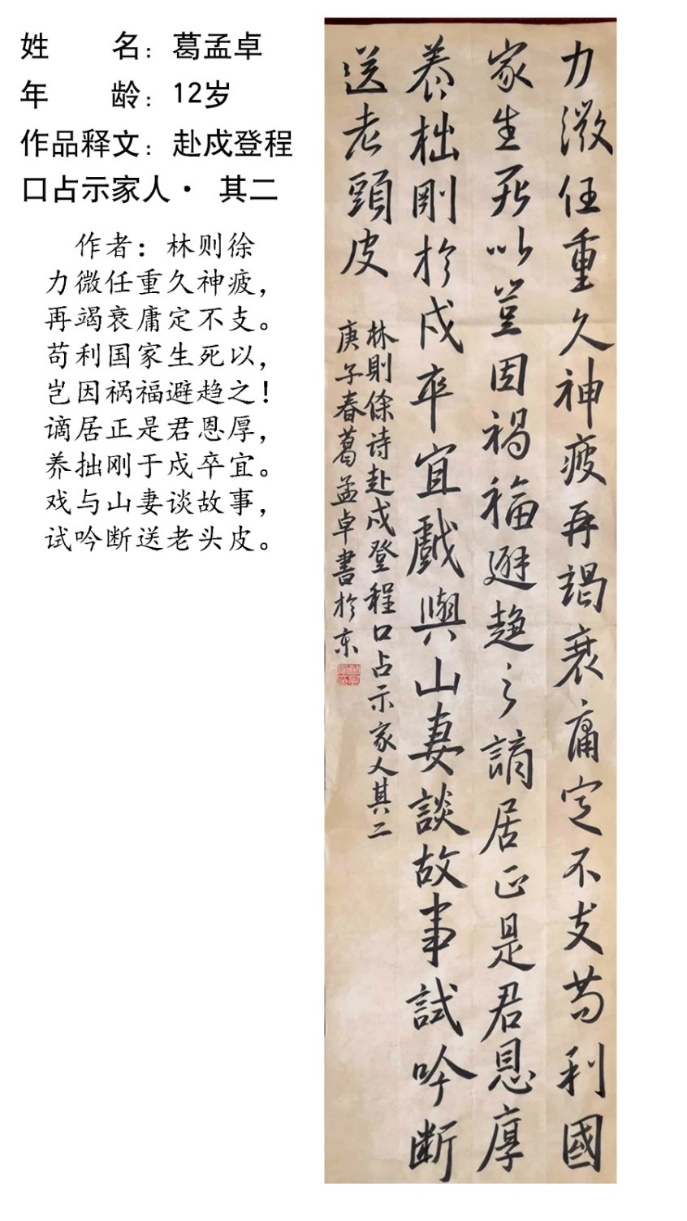 姓 名：葛孟卓
年 龄：12岁
作品释文：赴戍登程
口占示家人· 其二
作者：林则徐
力微任重久神疲，
再竭衰庸定不支。
苟利国家生死以，
岂因祸福避趋之！
谪居正是君恩厚，
养拙刚于戍卒宜。
戏与山妻谈故事，
试吟断送老头皮。
力微任重久神疲再竭衰庸定不支苟利國
家生死以豈因禍福避趨之謫居正是君恩厚
養拙剛於戍卒宜戲與山妻談故事試吟斷
送老頭皮
林則徐诗赴戍登程口占示家人其二
庚子春葛孟卓書於东